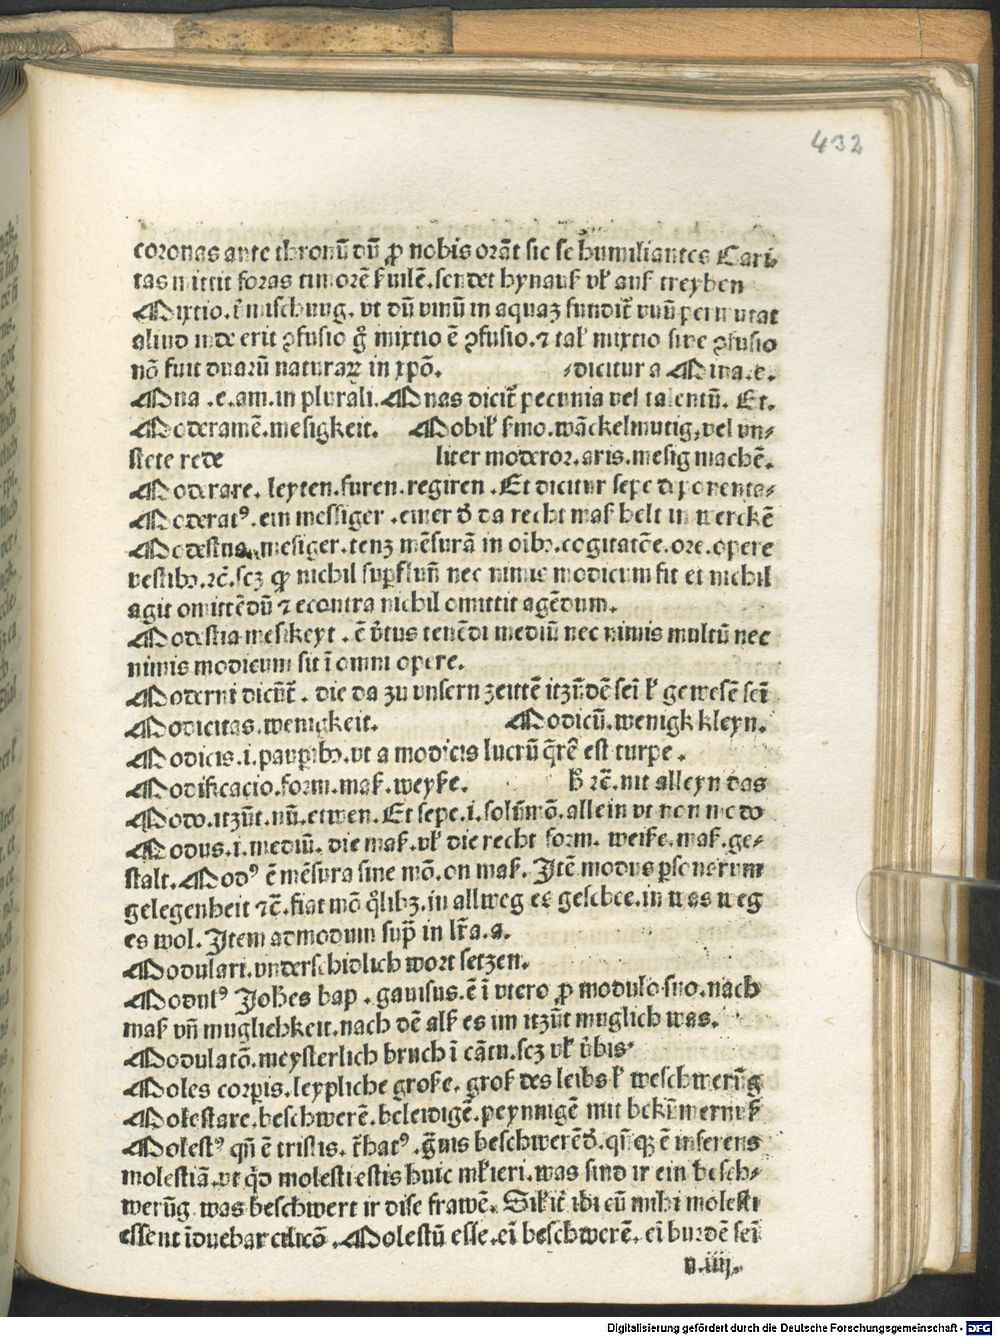 432
coronas ante thronū dū ꝓ nobis orāt sic se humiliantes Cari-
tas mittit foras timorē ẜuilē.sendet hynauß vl̕ auß treyben
Mixtio.ī mischung. vt dū vinū in aquaz fundit̕ vnū permutat
aliud inde erit ꝯfusio g̊ mixtio ē ꝯfusio.⁊ tal̕ mixtio siue ꝯfusio
nō fuit duarū naturaꝝ in xp̄o. ⸗dicitur a Mina.e.
Mna .e.am.in plurali.Mnas dicit̕ pecunia vel talentū. Et.
Moderamē.mesigkeit. Mobil̕ ẜmo.wāckelmutig,vel vn⸗
stete rede liter moderor.aris.mesig machē.
Moderare. leyten.furen.regiren .Et dicitur sepe deponenta⸗
Moderatꝰ.ein messiger .einer d̕ da recht maß helt in werckē
Modestus.mesiger.tenz mēsurā in oībꝫ.cogitatōe.ore.opere
vestibꝫ.⁊c̄.scꝫ ꝙ nichil suꝑfluū nec nimis modicum fit et nichil
agit omittēdū ⁊ econtra nichil omittit agēdum.
Modestia mesikeyt . ē v̕tus tenēdi mediū nec nimis multū nec
nimis modicum sit ī omni opere.
Moderni dicūt̕ . die da zu vnsern zeittē itzūdē sei l̕ gewesē seī
Modicitas.wenigkeit. Modicū.wenigk kleyn.
Modicis.i.pauꝑibꝫ.vt a modicis lucrū q̄rē est turpe .
Modificacio.form.maß.weyße. h̕ ⁊c̄.nit alleyn das
Modo.itzūt.nū.etwen. Et sepe.i.solūmō.allein vt non modo
Modus.i.mediū. die maß.vl̕ die recht form. weiße.maß.ge⸗
stalt.Modꝰ ē mēsura sine mō.on maß. Itē modus ꝑsonarum
gelegenheit ⁊c̄.fiat mō q̊libꝫ.in allweg es geschee.in was weg
es wol.Item admodum sup̄ in lr̄a.a.
Modulari.vnderschidlich wort setzen.
Modulꝰ Joh̄es bap .gauisus.ē ī vtero ꝓ modulo suo.nach
maß vn̄ muglichkeit.nach dē als es im itzūt muglich was.
Modulatō.meysterlich bruch ī cātu.scꝫ vl̕ v̕bis
Moles corꝑis.leypliche große. groß des leibs l̕ beschwerūg
Molestare.beschwerē.beleidigē.peynnigē mit bekūmerniß
Molestꝰ qn̄ ē tristis. t̄batꝰ .g̊uis beschwerēd̕.qn̄qꝫ ē inferens
molestiā.vt q̊d molesti estis huic ml̕ieri.was sind ir ein besch⸗
werūg was beschwert ir dise frawē. Sil̕it̕ ibi cū mihi molesti
essent īduebar cilicō .Molestū esse.eī beschwerē. eī burdē seī
n.iiij.
Digitalisierung gefördert durch die Deutsche Forschungsgemeinschaft - DFG